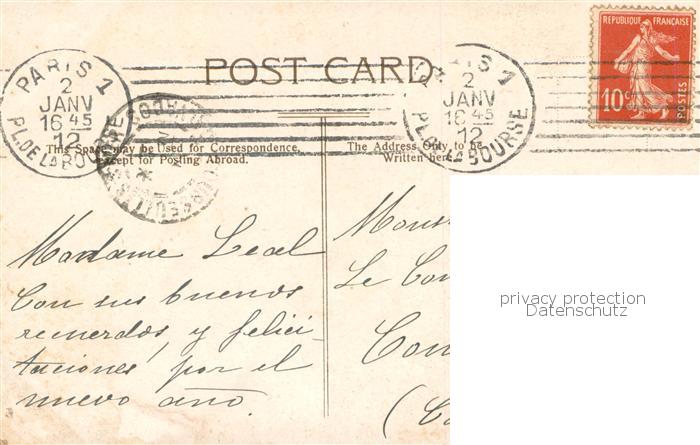 PARIS 1
2
JANV
16 45
12
PL. DE LA BOURSE
POST CARD
2
JANV
16 45
12
PL. DE LA BOURSE
REPUBLIQUE FRANÇAISE
10c
POSTES
This Space may be Used for Correspondence,
except for Posting Abroad.
The Address Only to be
Written here.
Madame Leal
Con sus buenos
recuerdos, y felici-
taciones por el
nuevo año.
Le
privacy protection
Datenschutz